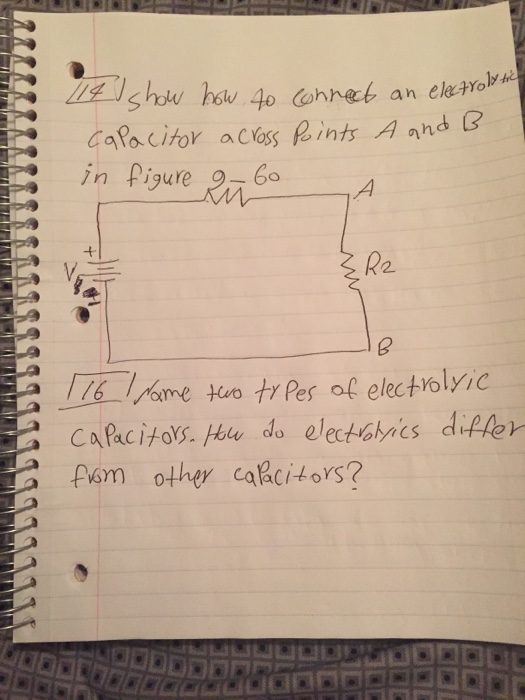 14 Show how to connect an electrolytic
capacitor across Points A and B
in figure 9-60
A
+
V
R2
-
B
16 Name two trPes of electrolyic
capacitors. How do electrolyics differ
from other capacitors?